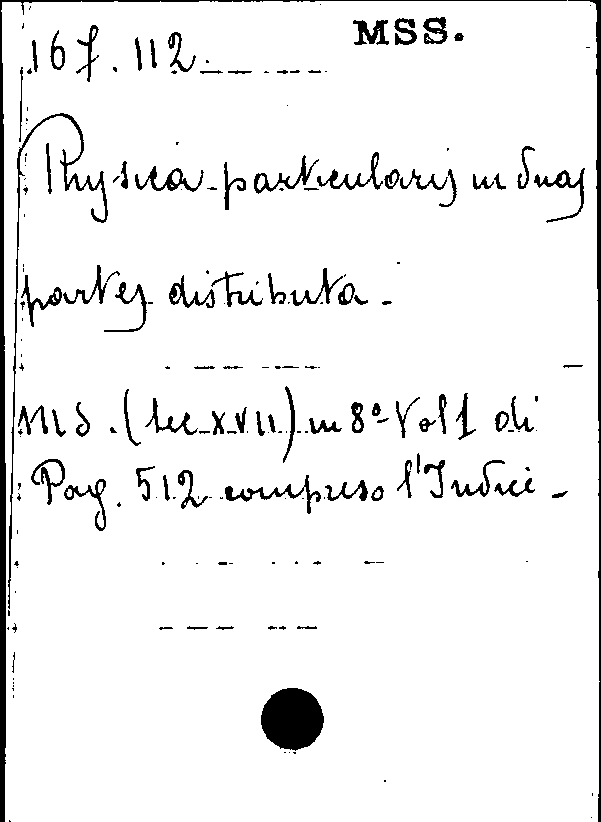 MSS.
167.112.
Physica particularis in duas
partes distributa -
MS. (sec XVII) in 8º Vol 1 di
Pag. 512 compreso l'Indice -